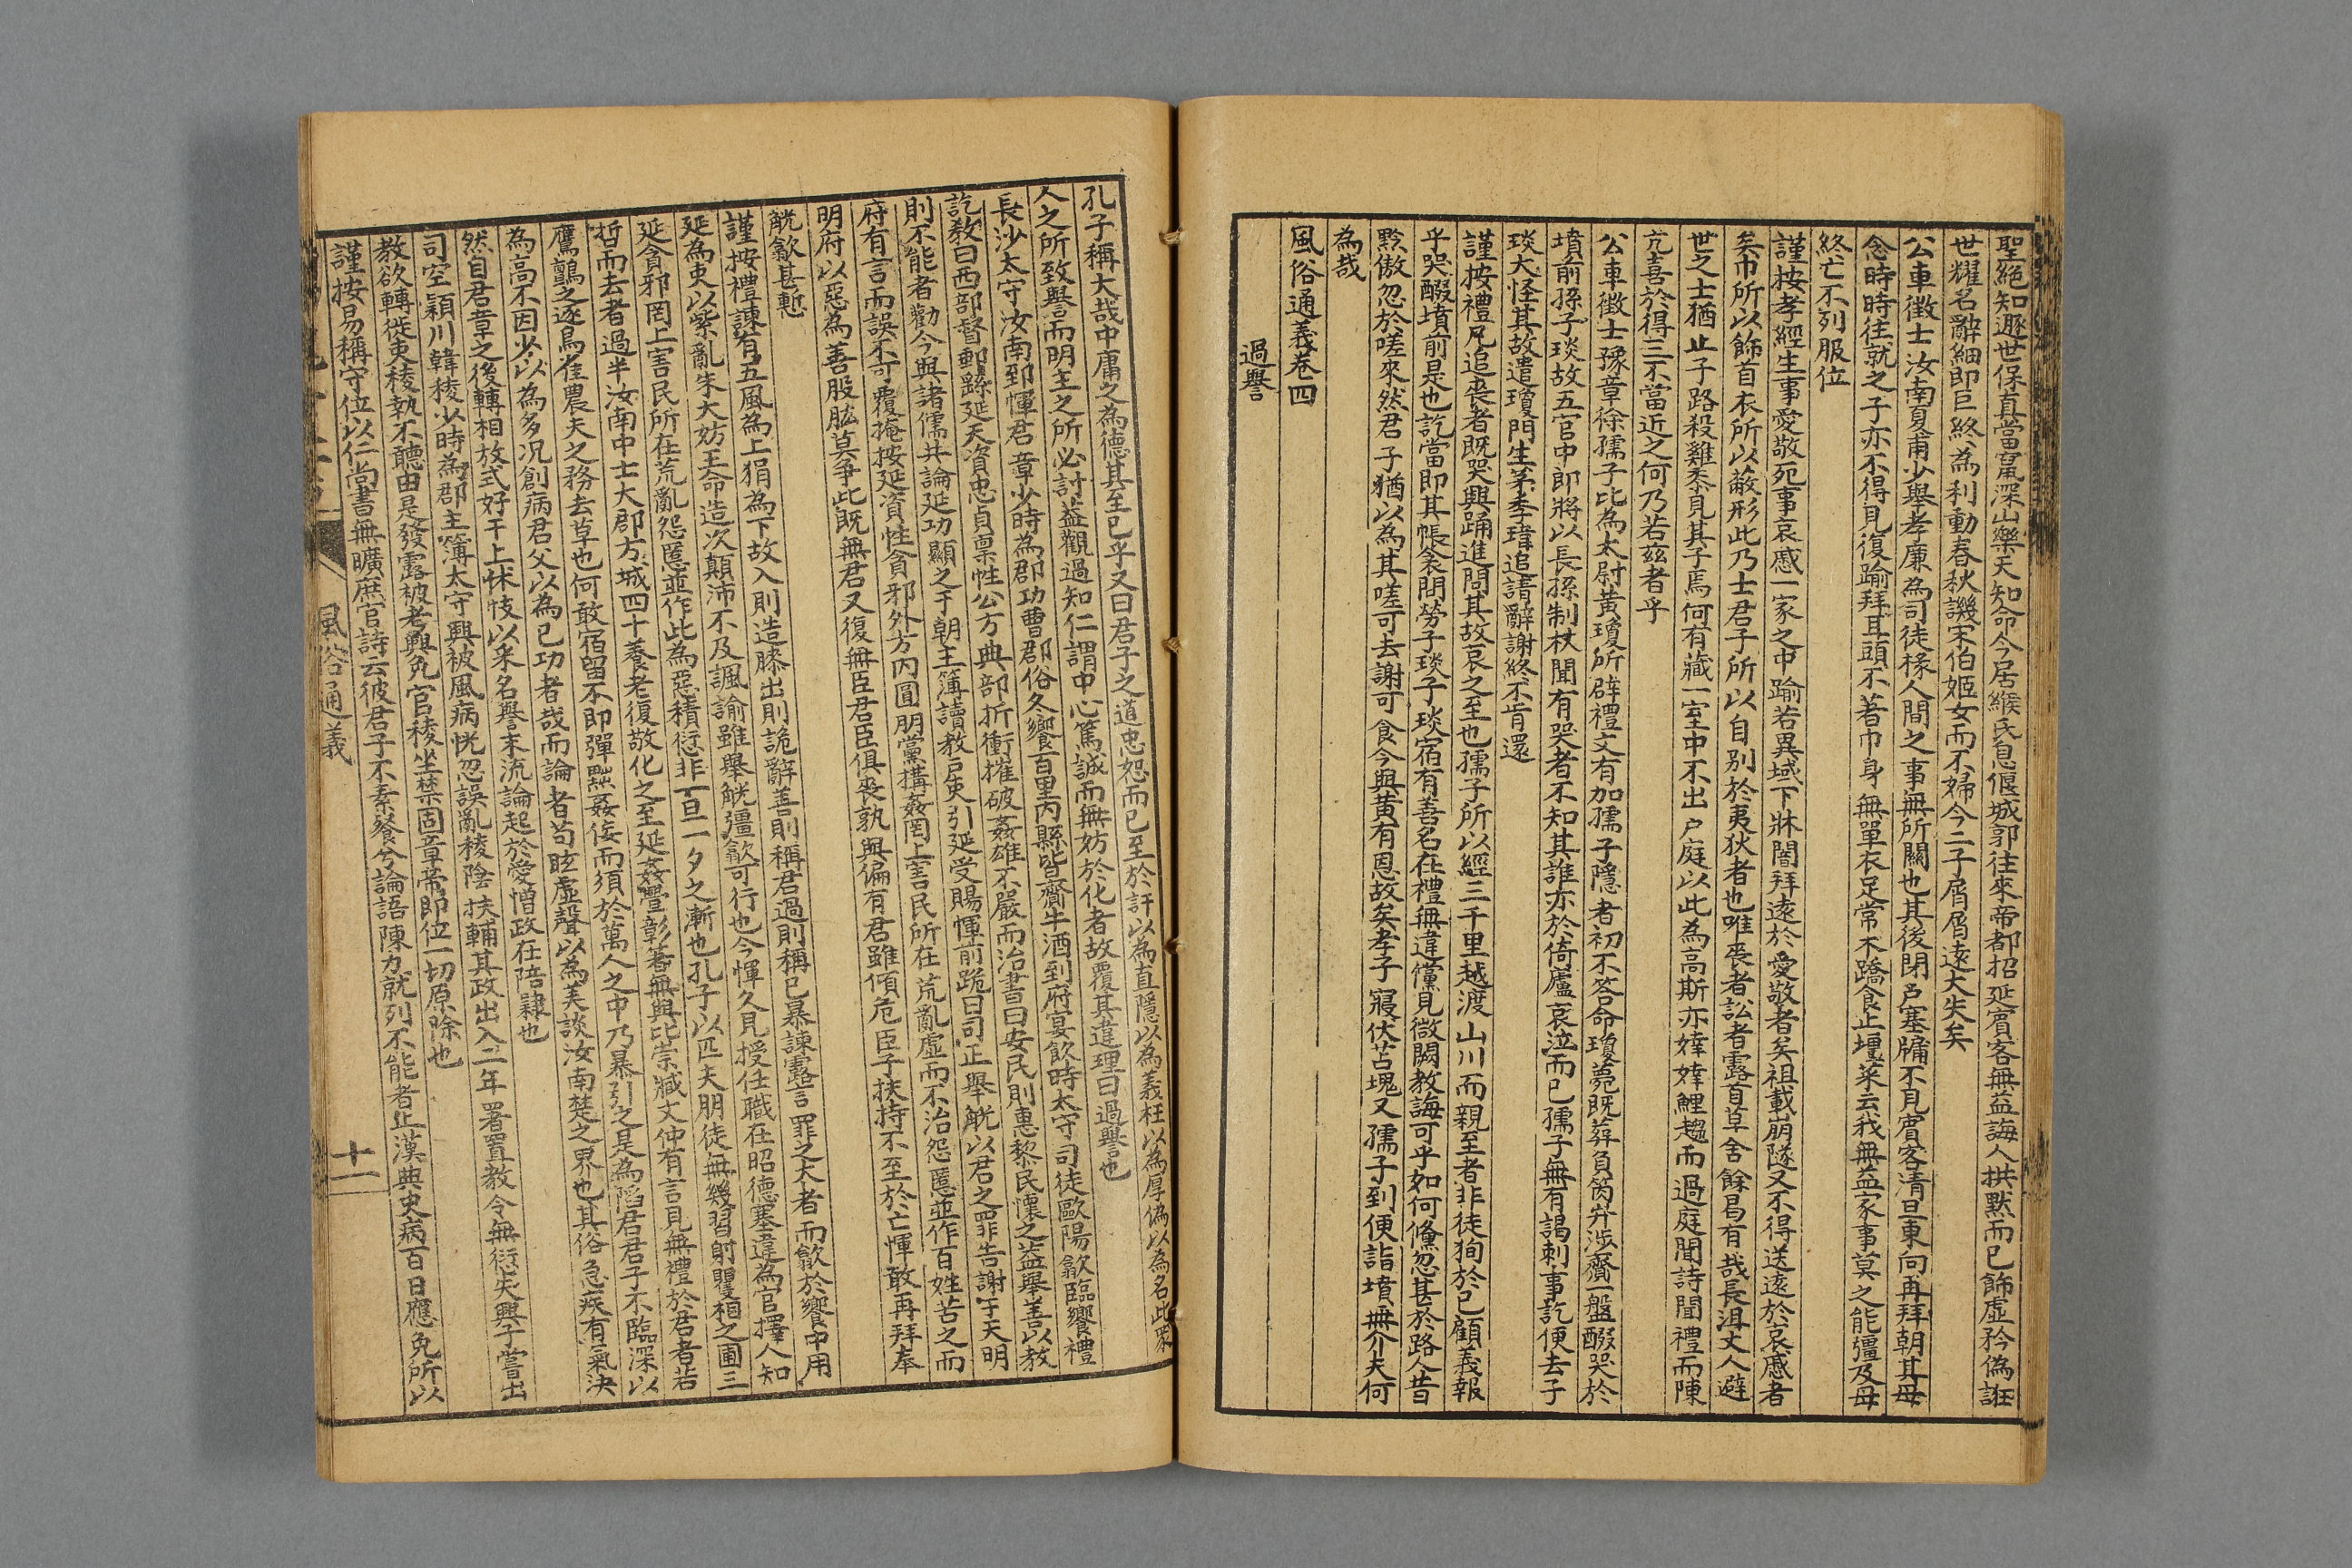 聖絕知遯世保真當竄深山樂天知命今居緱氏息偃城郭往來帝都招延賓客無益誨人拱默而已飾虛矜偽誑
世耀名辭細即巨終為利動春秋譏宋伯姬女而不婦今二子屑屑遠大失矣
公車徵士汝南夏甫少舉孝廉為司徒掾人間之事無所關也其後閉戶塞牖不見賓客清旦東向再拜朝其母
念時時往就之子亦不得見復踰拜耳頭不著巾身無單衣足常木蹻食止壃菜云我無益家事莫之能彊及母
終亡不列服位
謹按孝經生事愛敬死事哀慼一家之中踰若異域下牀闇拜遠於愛敬者矣祖載崩隧又不得送遠於哀慼者
矣巾所以飾首衣所以蔽形此乃士君子所以自别於夷狄者也唯喪者訟者露首草舍餘曷有哉長沮丈人避
世之士猶止子路殺雞黍見其子焉何有藏一室中不出戶庭以此為高斯亦婞婞鯉趨而過庭聞詩聞禮而陳
亢喜於得三不當近之何乃若茲者乎
公車徵士豫章徐孺子比為太尉黃瓊所辟禮文有加孺子隱者初不答命瓊薨既葬負笈弁涉齎一盤醊哭於
墳前孫子琰故五官中郎將以長孫制杖聞有哭者不知其誰亦於倚廬哀泣而已孺子無有謁刺事訖便去子
琰大怪其故遣瓊門生茅季瑋追請辭謝終不肯還
謹按禮凡追喪者既哭興踊進問其故哀之至也孺子所以經三千里越渡山川而親至者非徒狥於己顧義報
乎哭醊墳前是也訖當即其帳衾問勞子琰子琰宿有善名在禮無違儻見微闕教誨可乎如何儵忽甚於路人昔
黔傲忽於嗟來然君子猶以為其嗟可去謝可食今與黃有恩故矣孝子寢伏苫塊又孺子到便詣墳無介夫何
為哉
風俗通義卷四
過譽
孔子稱大哉中庸之為德其至已乎又曰君子之道忠恕而已至於訐以為直隱以為義枉以為厚偽以為名此衆
人之所致譽而明主之所必討蓋觀過知仁謂中心篤誠而無妨於化者故覆其違理曰過譽也
長沙太守汝南郅惲君章少時為郡功曹郡俗冬饗百里内縣皆齎牛酒到府宴飲時太守司徒歐陽歙臨饗禮
訖教曰西部督郵繇延天資忠貞禀性公方典部折衝摧破姦雄不嚴而治書曰安民則惠黎民懷之蓋舉善以教
則不能者勸今與諸儒共論延功顯之于朝主簿讀教戶吏引延受賜惲前跪曰司正舉觥以君之罪告謝于天明
府有言而誤不可覆掩按延資性貪邪外方内圓朋黨搆姦罔上害民所在荒亂虛而不治怨慝並作百姓苦之而
明府以惡為善股肱莫爭此既無君又復無臣君臣俱喪孰與偏有君雖傾危臣子扶持不至於亡惲敢再拜奉
觥歙甚慙
謹按禮諫有五風為上狷為下故入則造膝出則詭辭善則稱君過則稱已暴諫露言罪之大者而歙於饗中用
延為吏以紫亂朱大妨王命造次顛沛不及諷諭雖舉觥彊歙可行也今惲久見授任職在昭德塞違為官擇人知
延貪邪罔上害民所在荒亂怨慝並作此為惡積愆非一旦一夕之漸也孔子以匹夫朋徒無幾習射矍相之圃三
哲而去者過半汝南中士大郡方城四十養老復敬化之至延姦舋彰著無與比崇臧文仲有言見無禮於君者若
鷹鸇之逐鳥雀農夫之務去草也何敢宿留不即彈黜姦佞而須於萬人之中乃暴引之是為陷君君子不臨深以
為高不因少以為多况創病君父以為已功者哉而論者苟眩虛聲以為美談汝南楚之界也其俗急疾有氣決
然自君章之後轉相放式好干上怵忮以采名譽末流論起於愛憎政在陪隸也
司空潁川韓稜少時為郡主簿太守興被風病恍忽誤亂稜陰扶輔其政出入二年署置教令無愆失興子嘗出
教欲轉徙吏稜執不聽由是發露被考興免官稜坐禁固章帝即位一切原除也
謹按易稱守位以仁尚書無曠庶官詩云彼君子不素餐兮論語陳力就列不能者止漢典吏病百日應免所以
風俗通義
十一